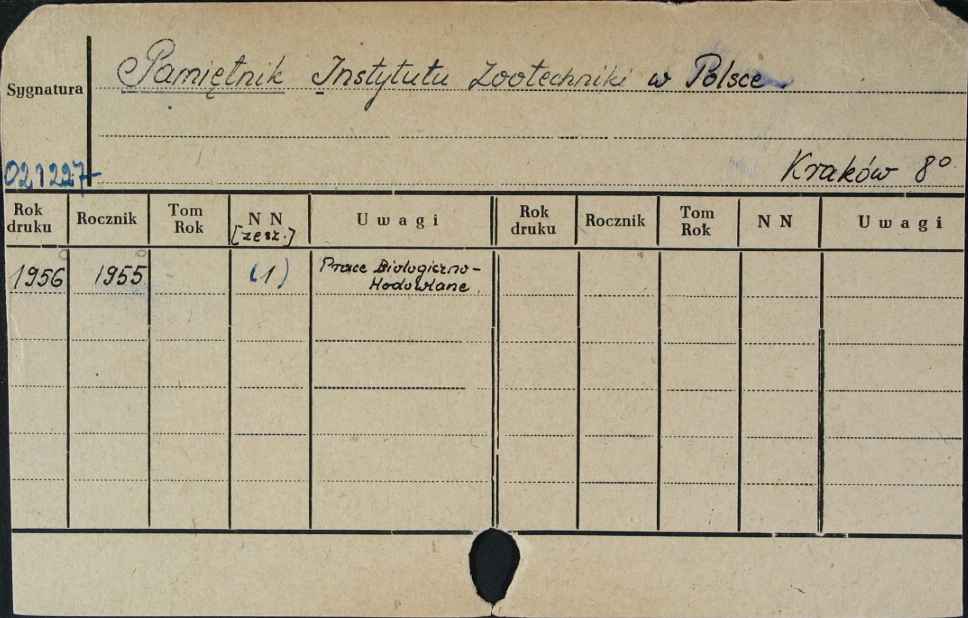 Pamiętnik Instytutu Zootechniki w Polsce
Sygnatura
021227
Kraków 8°
Rok druku Rocznik Tom Rok N N [zesz.] Uwagi Rok druku Rocznik Tom Rok N N Uwagi
1956 1955 (1) Prace Biologiczno-
Hodowlane